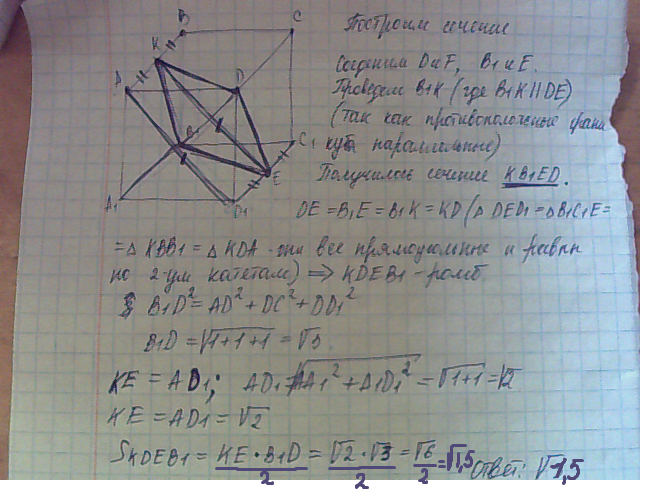 B
C
K
A
D
B₁
C₁
E
A₁
D₁
Построим сечение
Соединим D и E, B₁ и E.
Проведем B₁K (где B₁K∥DE)
(так как противоположные грани
куба параллельные)
Получилось сечение KB₁ED.
DE = B₁E = B₁K = KD (△ DED₁ = △B₁C₁E =
= △ KBB₁ = △ KDA - они все прямоугольные и равны
по 2-ум катетам) ⇒ KDEB₁ - ромб.
B₁D² = AD² + DC² + DD₁²
B₁D = √1+1+1 = √3.
KE = AD₁; AD₁ = √AA₁² + A₁D₁² = √1+1 = √2
KE = AD₁ = √2
S KDEB₁ = KE · B₁D / 2 = √2 · √3 / 2 = √6 / 2 = √1,5 Ответ: √1,5